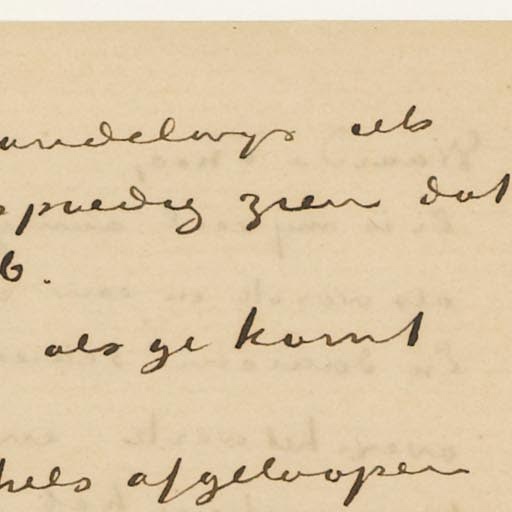 andelings als
spoedig zien dat
6.
als ge komt
hels afgeloopen